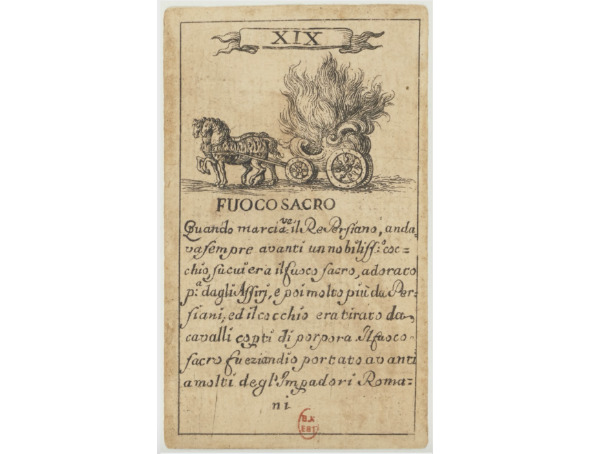 XIX
FUOCO SACRO
Quando marciava il Re Persiano, anda,
va sempre avanti un nobiliss.º coc-
chio, sù cui era il fuoco sacro, adorato
p.ª dagli Assirj, e poi molto più da Per-
siani, ed il cocchio era tirato da
cavalli copti di porpora. Il fuoco
sacro fu eziandio portato avanti
a molti degl'Impadori Roma-
ni